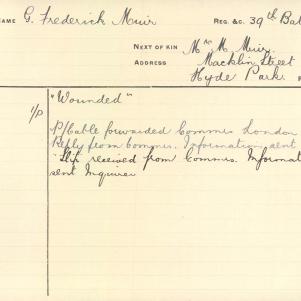 NAME G. Frederick Muir REG. &C. 39th Bat
NEXT OF KIN Mrs M. Muir.
ADDRESS Macklin Street
Hyde Park.
"Wounded"
P/Cable forwarded Commrs London
Reply from Commrs. Information sent
Slip received from Commrs. Informat
sent Inquirer